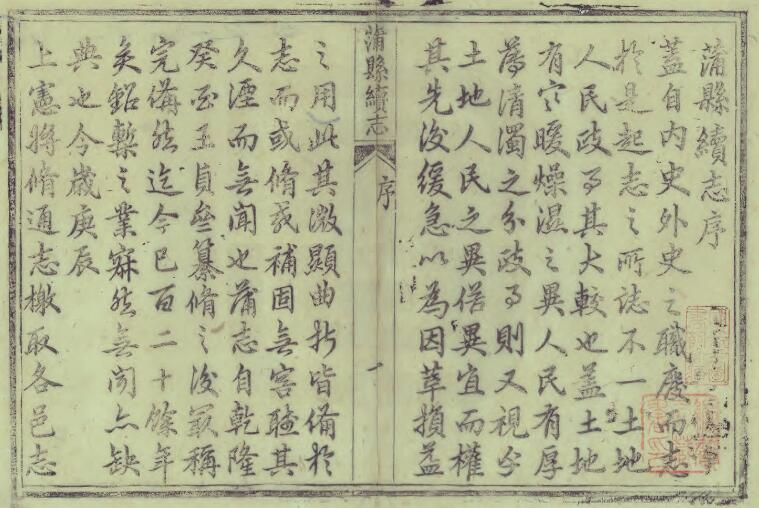 蒲縣續志序
蓋自内史外史之職廢而志
於是起志之所誌不一土地
人民政事其大較也蓋土地
有寒暖燥濕之異人民有厚
薄清濁之分政事則又視乎
土地人民之異俗異宜而權
其先後緩急以為因革損益
蒲縣續志
序
一
之用此其微顯曲折皆備於
志而或脩或補固無容聽其
久湮而無聞也蒲志自乾隆
癸酉王貞纂脩之後最稱
完備然迄今已百二十餘年
矣鉛槧之業寂然無聞亦缺
典也今歲庚辰
上憲將脩通志檄取各邑志